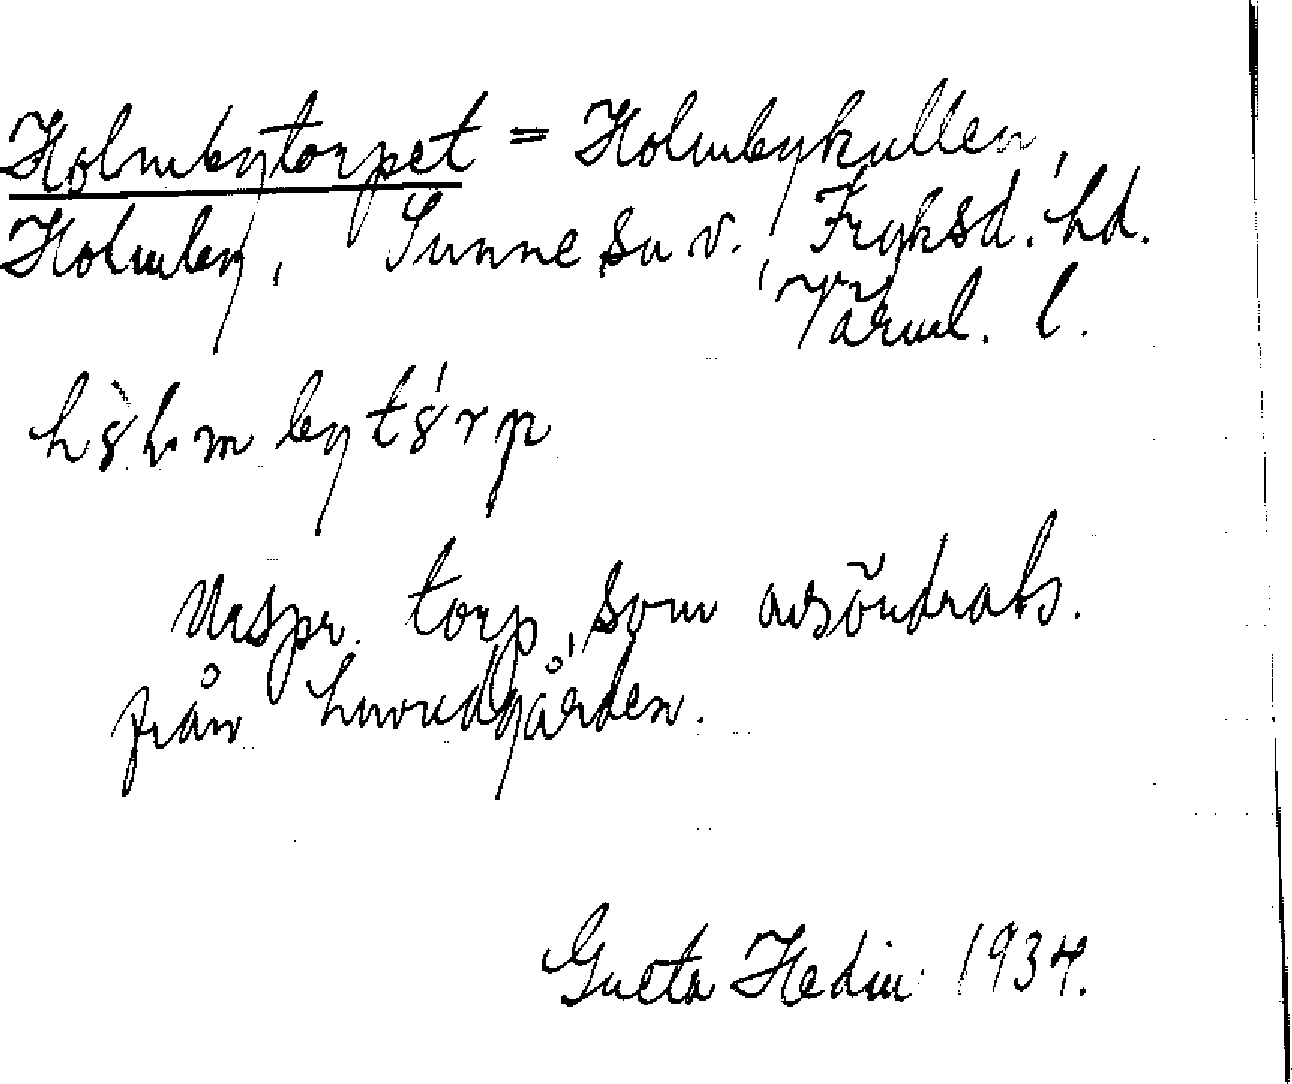 Holmbytorpet = Holmbykullen,
Holmby, Sunne sn v., Fryksd. hd.
Värml. l.
Urspr. torp, som avsöndrats.
från huvudgården.
Greta Hedin 1934.